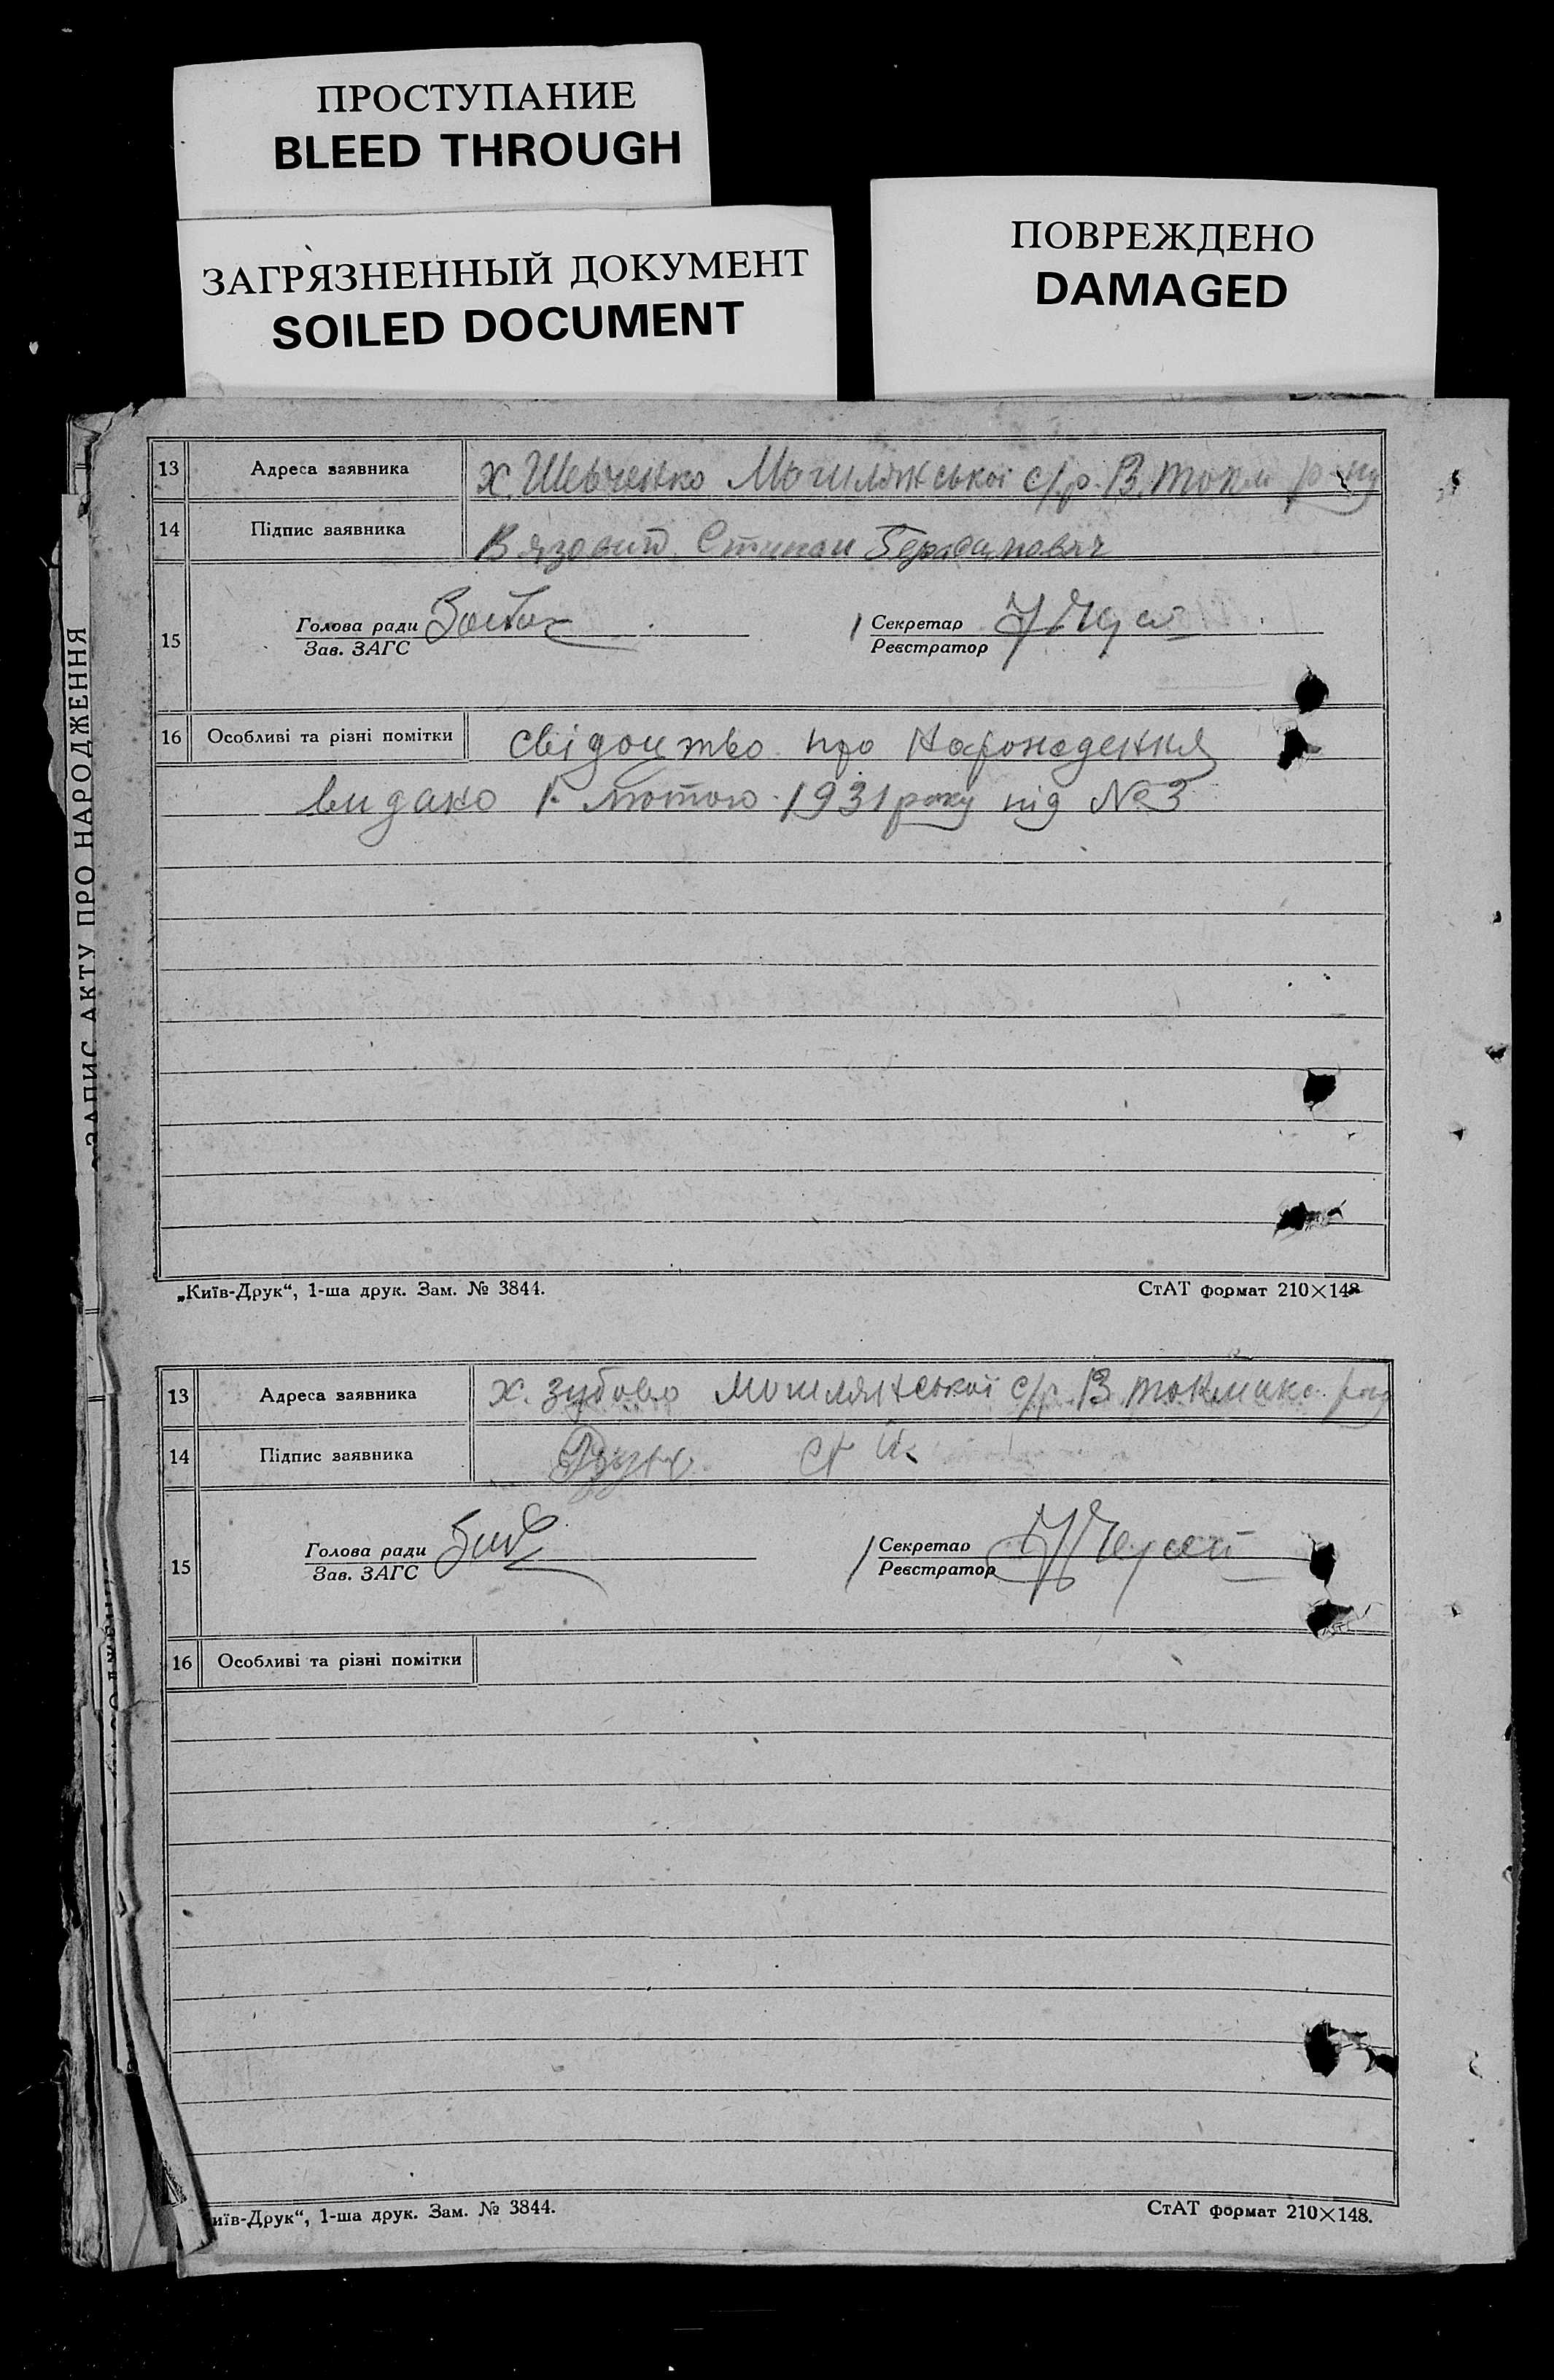 ПРОСТУПАНИЕ
BLEED THROUGH
ЗАГРЯЗНЕННЫЙ ДОКУМЕНТ
SOILED DOCUMENT
ПОВРЕЖДЕНО
DAMAGED
ЗАПИС АКТУ ПРО НАРОДЖЕННЯ
13 Адреса заявника х. Шевченко с/р. В. Токм
14 Підпис заявника Вязовий Степан Герасимович
15 Голова ради Секретар
Зав. ЗАГС Реєстратор
16 Особливі та різні помітки свідоцтво про Народження
видано 1 лютого 1931 року під № 3
„Київ-Друк“, 1-ша друк. Зам. № 3844. СтАТ формат 210×148
13 Адреса заявника х. Зубово с/р. В. Токмако
14 Підпис заявника
15 Голова ради Секретар
Зав. ЗАГС Реєстратор
16 Особливі та різні помітки
иїв-Друк“, 1-ша друк. Зам. № 3844. СтАТ формат 210×148.